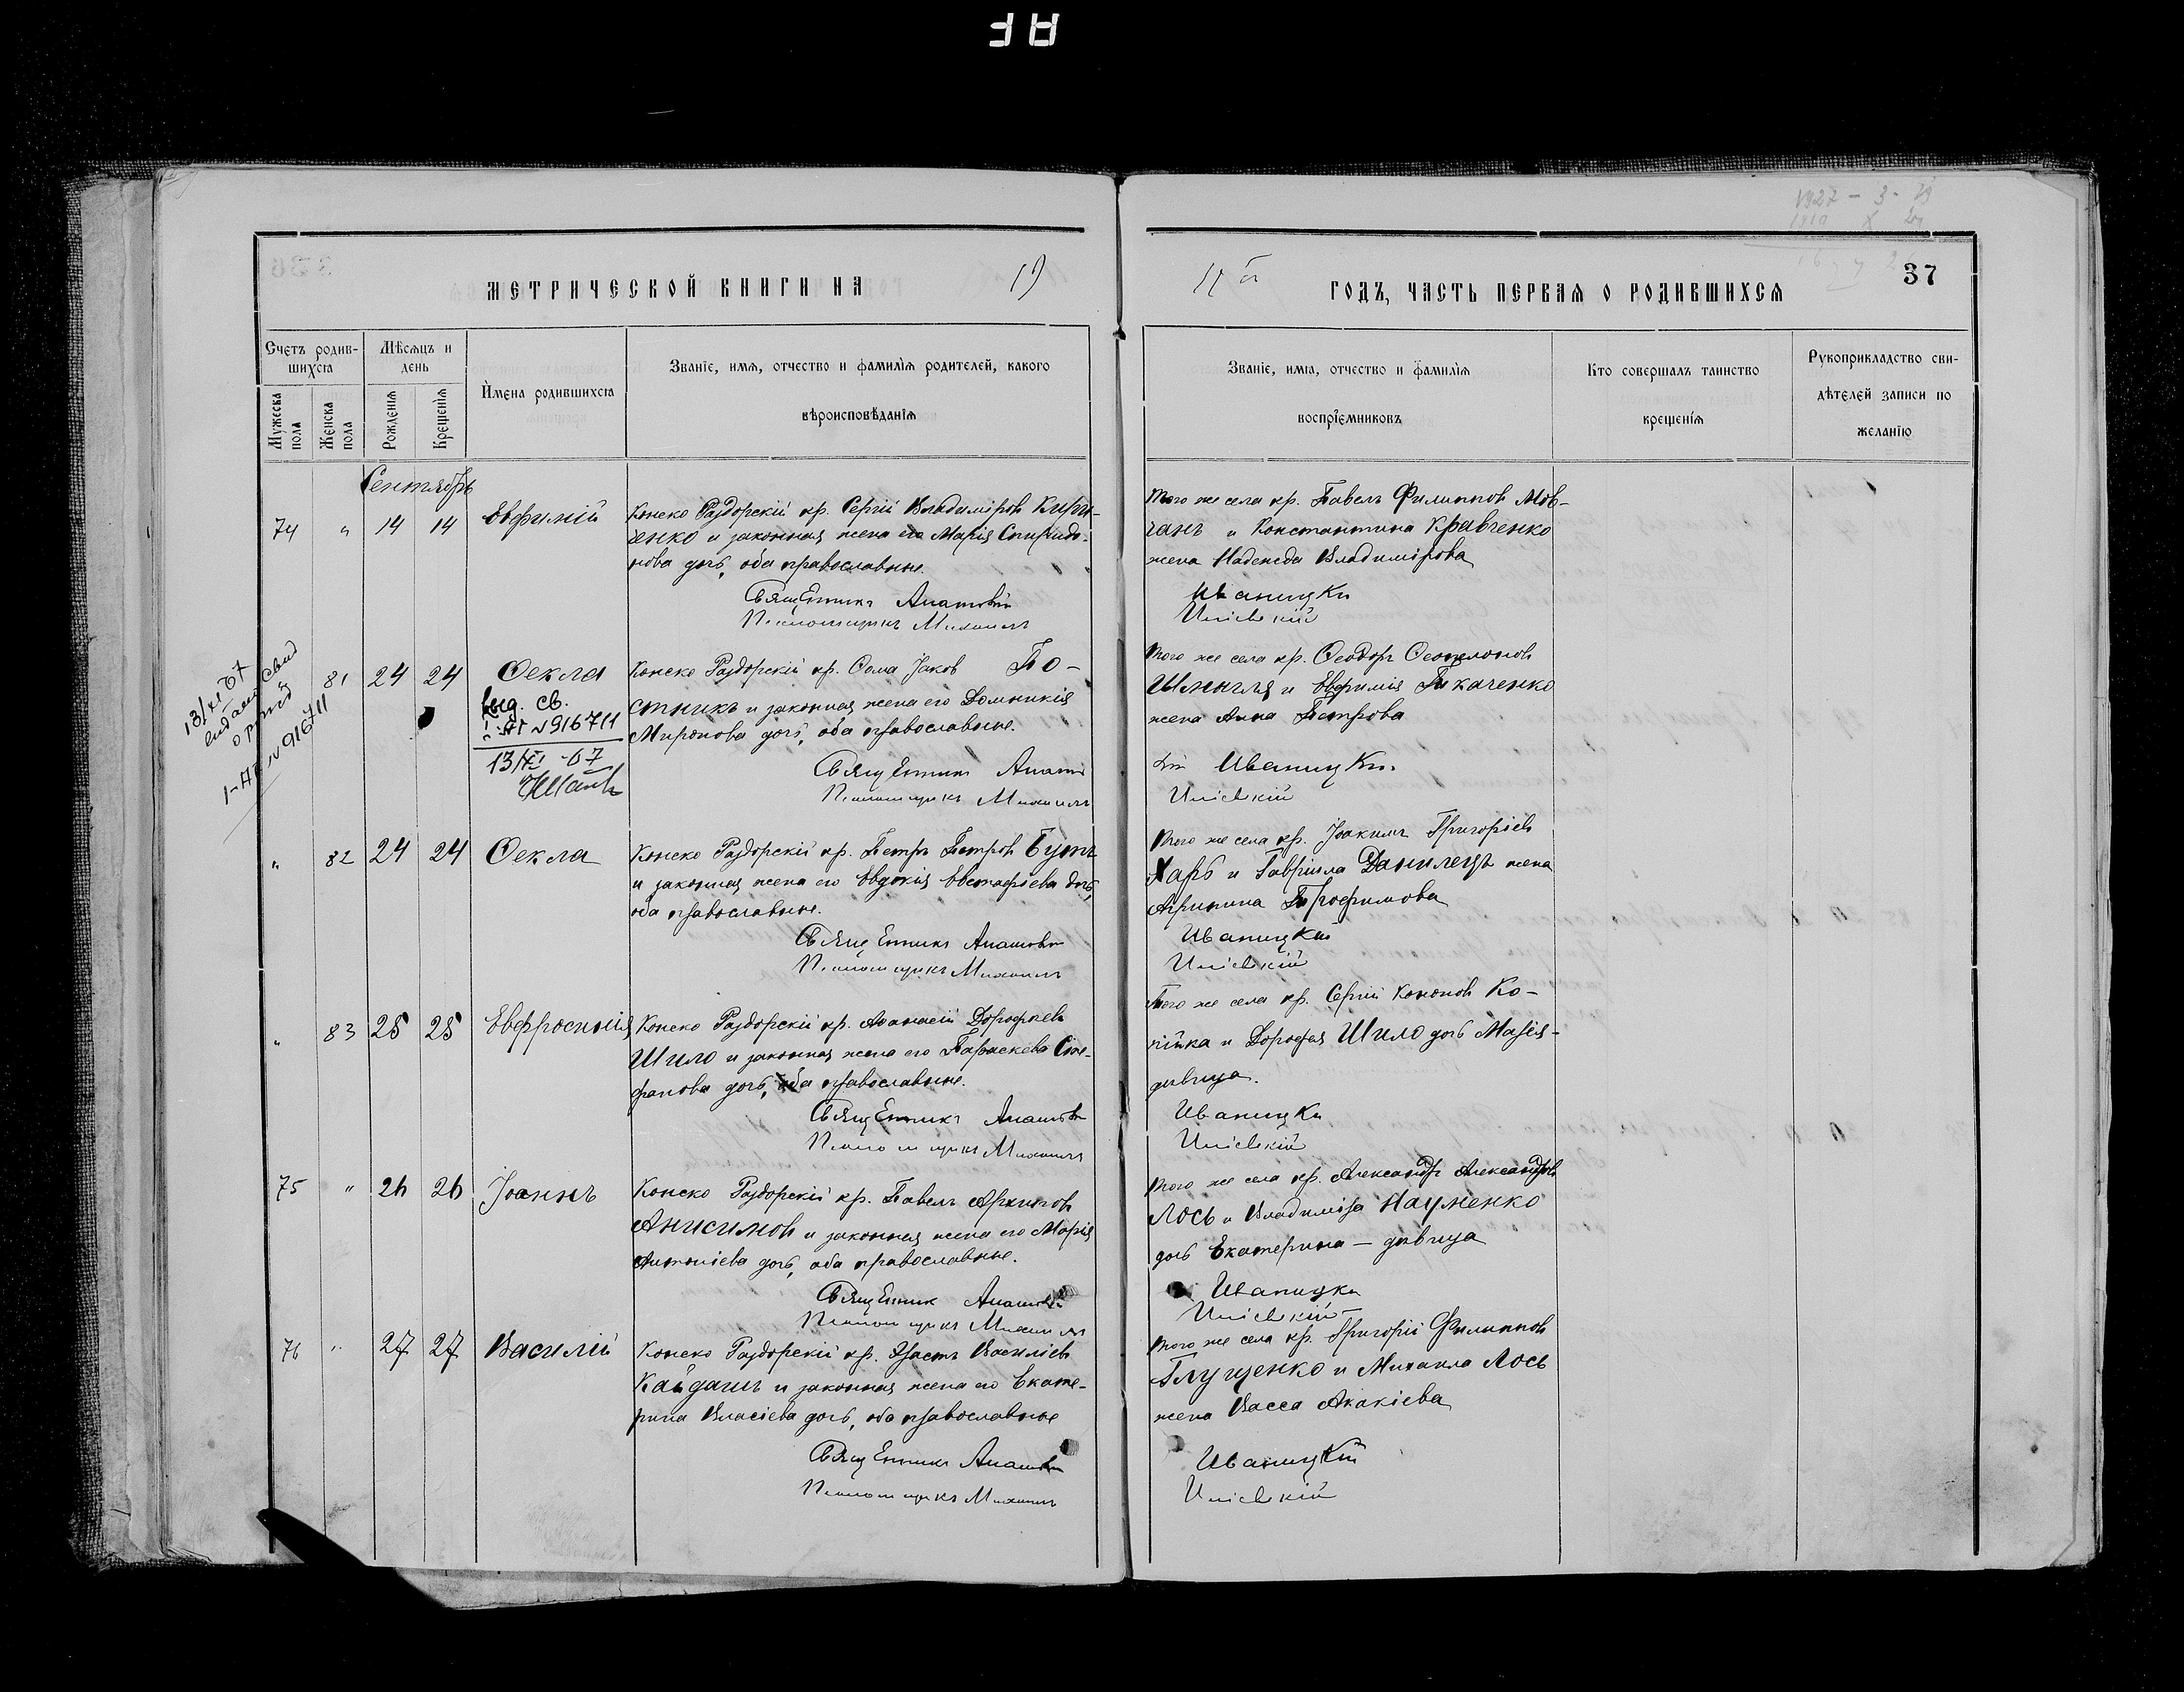 ЯF
1927 - 3 -
1910 X
МЕТРИЧЕСКОЙ КНИГИ НА 19
11 й ГОДЪ, ЧАСТЬ ПЕРВАЯ О РОДИВШИХСЯ
37
Счетъ родившихся
Мѣсяцъ и день
Имена родившихся
Званіе, имя, отчество и фамилія родителей, какого вѣроисповѣданія
Званіе, имя, отчество и фамилія воспріемниковъ
Кто совершалъ таинство крещенія
Рукоприкладство свидѣтелей записи по желанію
Мужеска пола
Женска пола
Рожденія
Крещенія
Сентябрь
74 " 14 14 Евфимій
Конско Раздорскій кр. Сергій Владиміровъ Кири-
ченко и законная жена его Марія Спиридо-
нова дочь, оба православные.
Священникъ
Псаломщикъ Михаилъ
Того же села кр. Павелъ Филипповъ Мов-
чанъ и Константина Кравченко
жена Надежда Владимірова
Иваницкій
81 24 24 Ѳекла
выд. св.
№916711
13/XI -67
13/XI 67
видано свид
1-АГ №916711
Конско Раздорскій кр. Ѳома Іаков По-
стникъ и законная жена его Домникія
Миронова дочь, оба православные.
Священникъ
Псаломщикъ Михаилъ
Того же села кр. Ѳеодоръ
и Евфимія Ткаченко
жена Анна Петрова
Иваницкій
" 82 24 24 Ѳекла
Конско Раздорскій кр. Петръ Петровъ Бутъ
и законная жена его Евдокія Евстафіева дочь,
оба православные.
Священникъ
Псаломщикъ Михаилъ
Того же села кр. Іоакимъ Григоріевъ
Харь и Гавріила Данилецъ жена
Агрипина Трофимова
Иваницкій
" 83 25 25 Евфросинія
Конско Раздорскій кр. Аѳанасій Дорофеевъ
Шило и законная жена его Параскева Сте-
фанова дочь, оба православные.
Священникъ
Псаломщикъ Михаилъ
Того же села кр. Сергій Кононовъ Ко-
пійка и Дорофея Шило дочь Марія -
дѣвица.
Иваницкій
75 " 26 26 Іоаннъ
Конско Раздорскій кр. Павелъ Архиповъ
Анисимовъ и законная жена его Марія
Антоніева дочь, оба православные.
Священникъ
Псаломщикъ Михаилъ
Того же села кр. Александръ Александровъ
Лось и Владиміра Науменко
дочь Екатерина — дѣвица
Иваницкій
76 " 27 27 Василій
Конско Раздорскій кр. Эрастъ Василіевъ
Кайдашъ и законная жена его Екате-
рина Власіева дочь, оба православные
Священникъ
Псаломщикъ Михаилъ
Того же села кр. Григорій Филипповъ
Глущенко и Михаила Лось
жена Васса Акакіева
Иваницкій